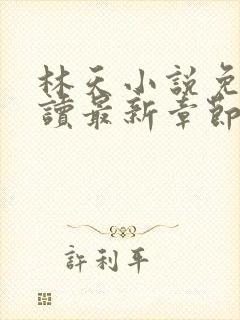 林天小說免
讀最新章節
許利平